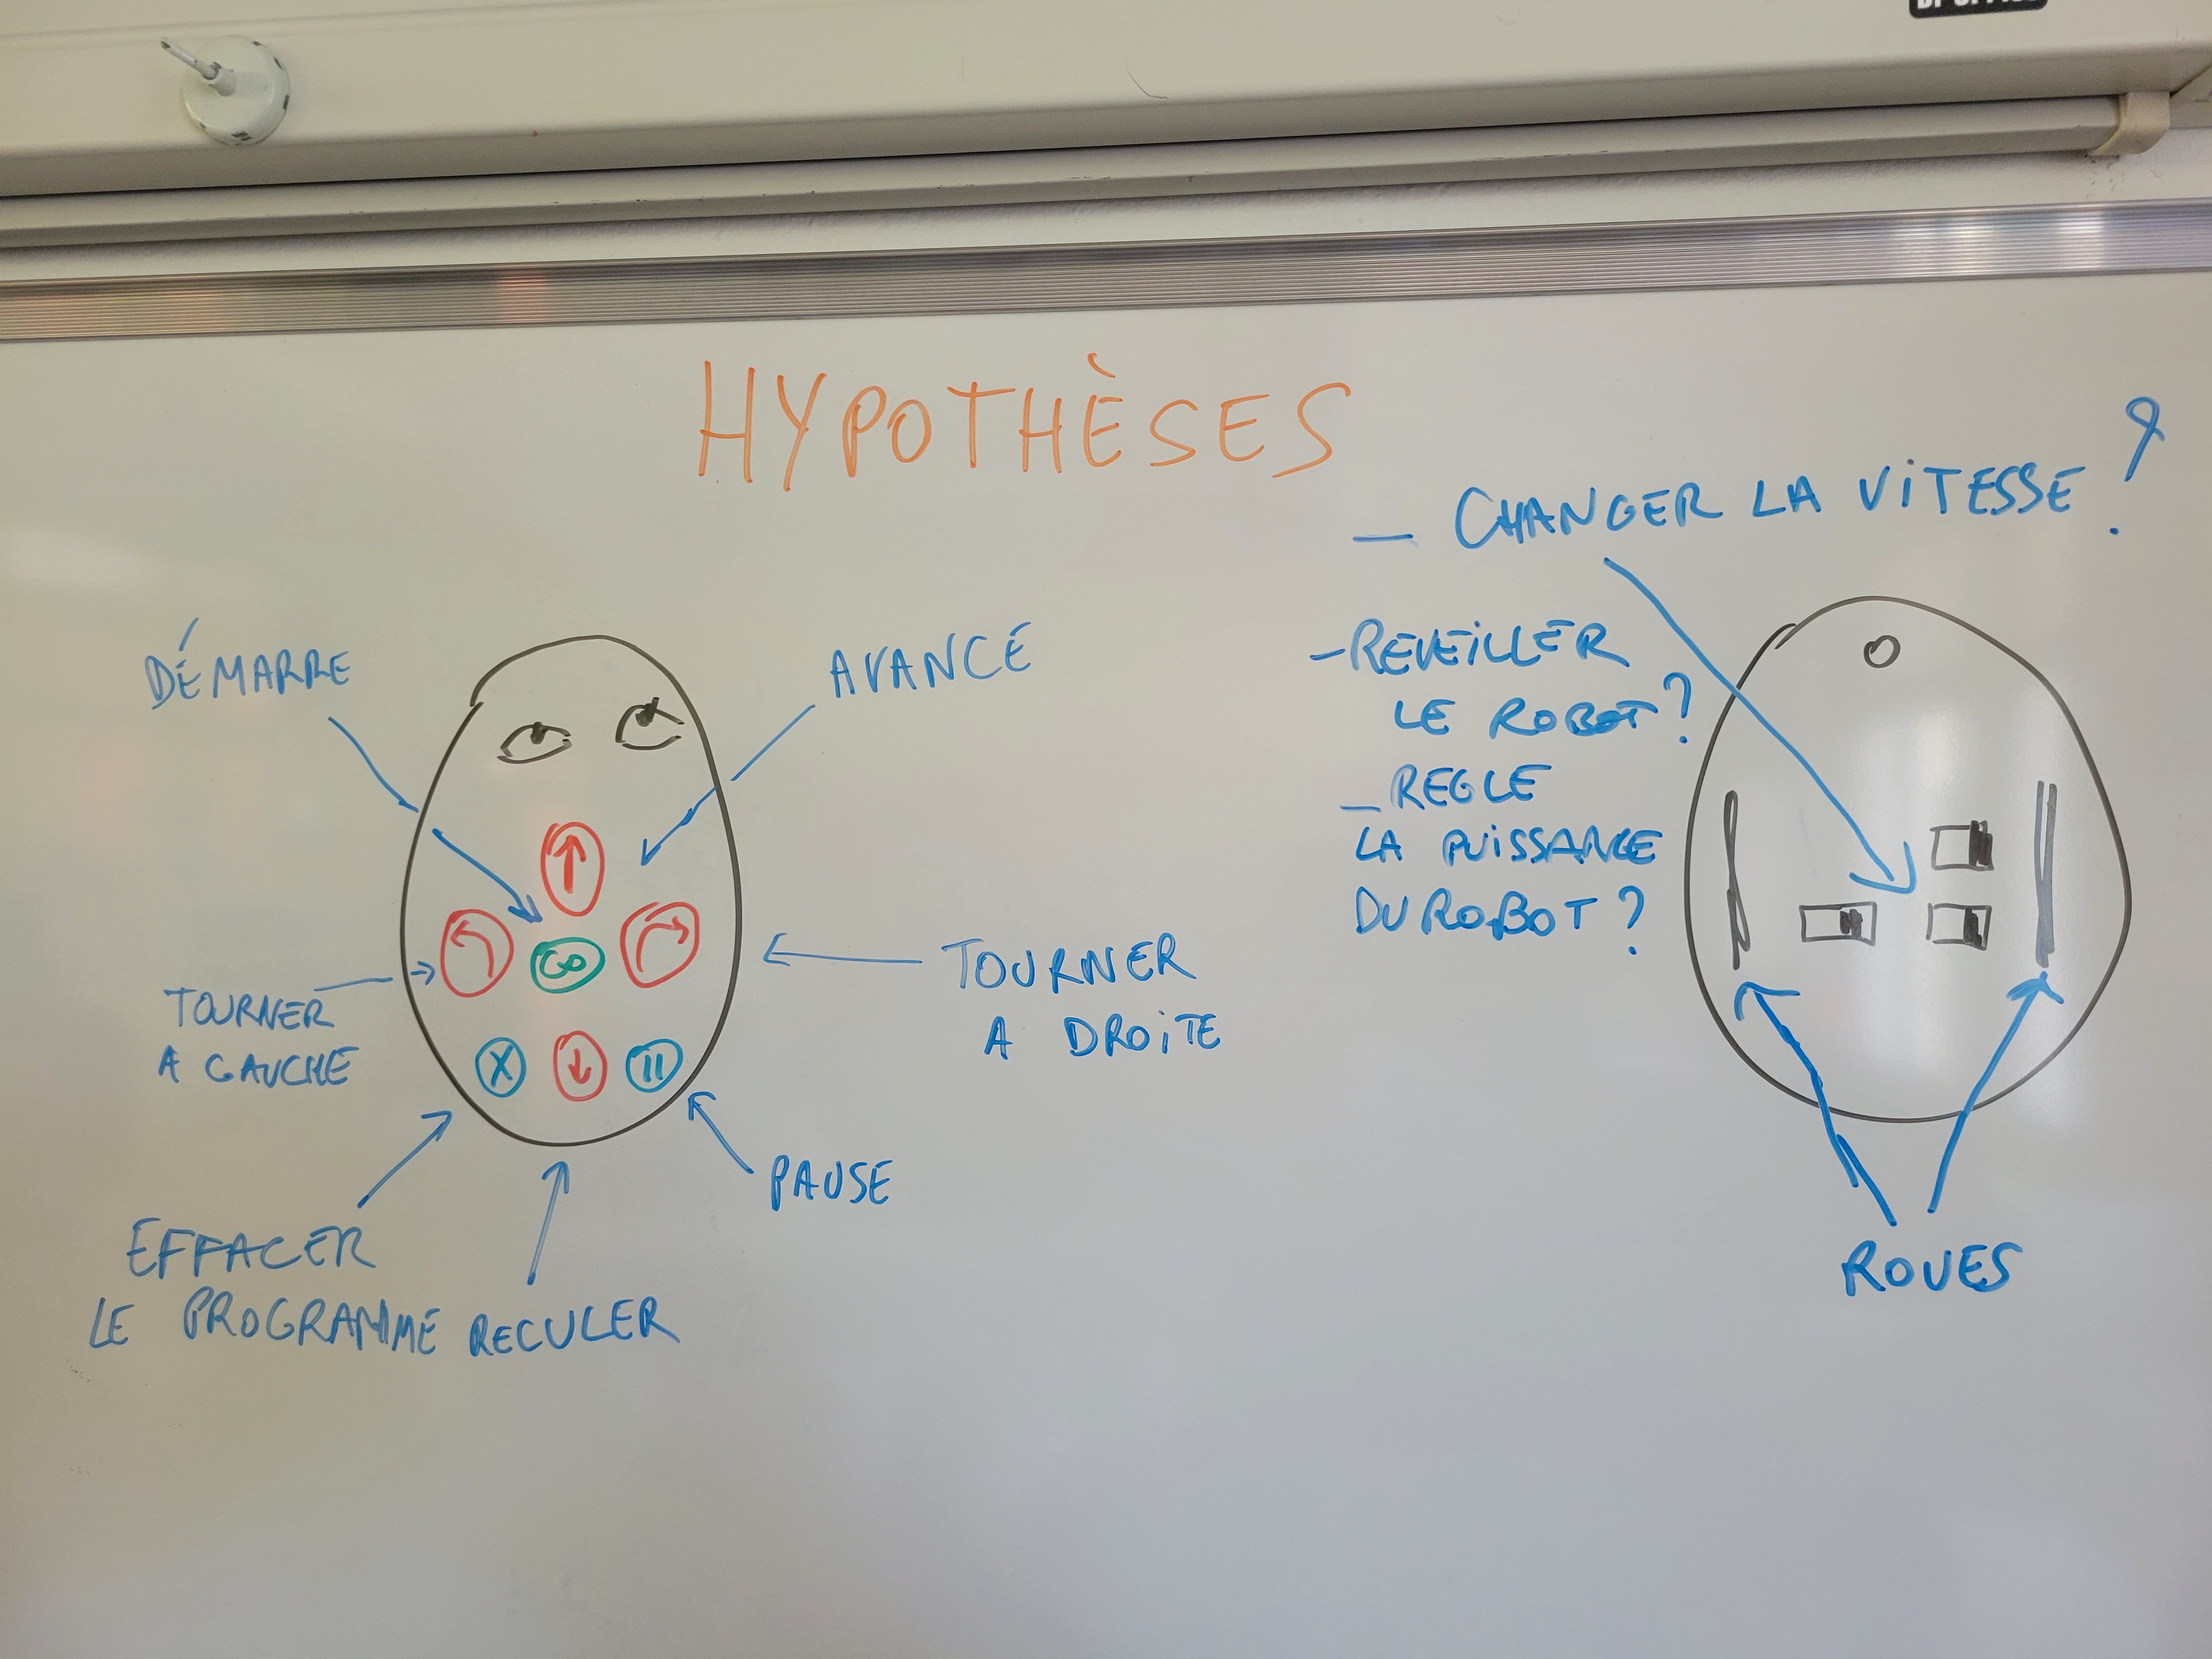 HYPOTHÈSES
DÉMARRE
AVANCE
TOURNER
A GAUCHE
GO
TOURNER
A DROITE
X
PAUSE
EFFACER
LE PROGRAMME
RECULER
- CHANGER LA VITESSE ?
- REVEILLER
LE ROBOT ?
- REGLE
LA PUISSANCE
DU ROBOT ?
ROUES